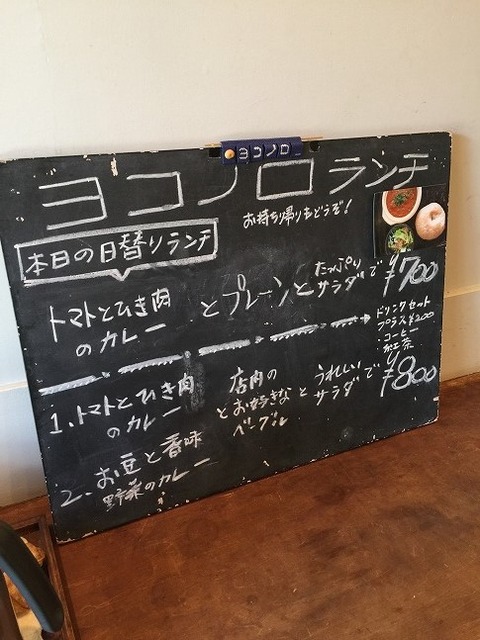 ヨコノロ
ヨコノロ ランチ
お持ち帰りもどうぞ!
本日の日替りランチ
トマトとひき肉
のカレー
とプレーンと
たっぷり
サラダで
¥700
ドリンクセット
プラス¥200
コーヒー
紅茶
1.トマトとひき肉
のカレー
2.お豆と香味
野菜のカレー
店内の
とお好きな
ベーグル
と
うれしい
サラダで
¥800